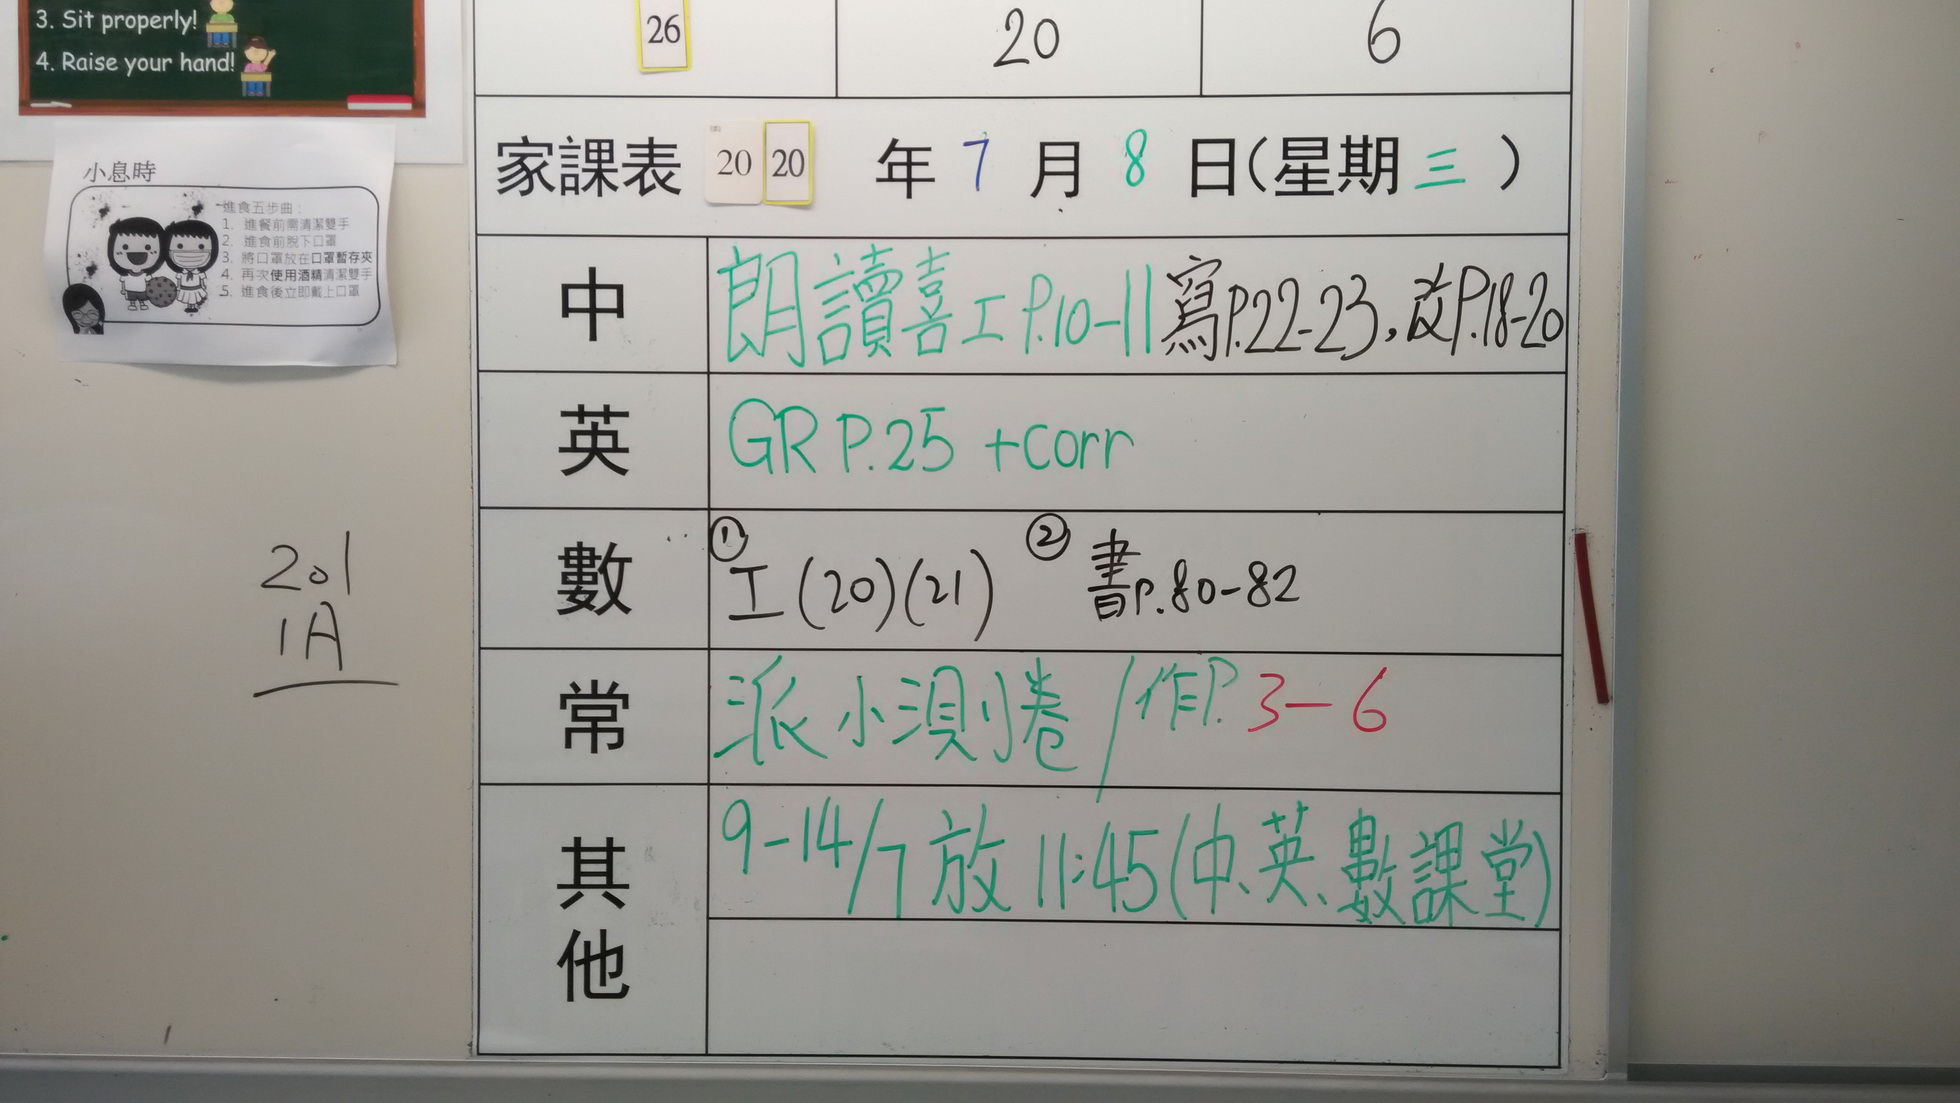 3. Sit properly!
4. Raise your hand!
26 20 6
家課表 20 20 年 7 月 8 日(星期三)
小息時
進食五步曲:
1. 進餐前需清潔雙手
2. 進食前脫下口罩
3. 將口罩放在口罩暫存夾
4. 再次使用酒精清潔雙手
5. 進食後立即戴上口罩
中 朗讀喜工P.10-11寫P.22-23,改P.18-20
英 GR P.25 +corr
數 ①工(20)(21) ②書P.80-82
常 派小測卷/作P.3-6
其他 9-14/7放11:45(中、英、數課堂)
201
1A